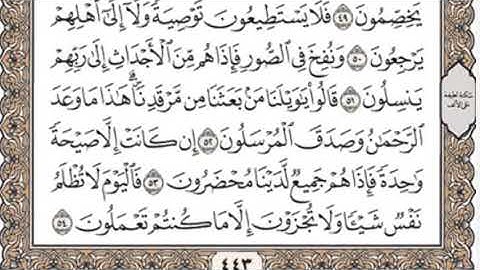 يَخِصِّمُونَ ۝٤٩ فَلَا يَسْتَطِيعُونَ تَوْصِيَةً وَلَآ إِلَىٰٓ أَهْلِهِمْ
يَرْجِعُونَ ۝٥٠ وَنُفِخَ فِي ٱلصُّورِ فَإِذَا هُم مِّنَ ٱلْأَجْدَاثِ إِلَىٰ رَبِّهِمْ
يَنسِلُونَ ۝٥١ قَالُوا۟ يَٰوَيْلَنَا مَنۢ بَعَثَنَا مِن مَّرْقَدِنَا ۜ هَٰذَا مَا وَعَدَ
ٱلرَّحْمَٰنُ وَصَدَقَ ٱلْمُرْسَلُونَ ۝٥٢ إِن كَانَتْ إِلَّا صَيْحَةً
وَٰحِدَةً فَإِذَا هُمْ جَمِيعٌ لَّدَيْنَا مُحْضَرُونَ ۝٥٣ فَٱلْيَوْمَ لَا تُظْلَمُ
نَفْسٌ شَيْـًٔا وَلَا تُجْزَوْنَ إِلَّا مَا كُنتُمْ تَعْمَلُونَ ۝٥٤
سكتة لطيفة
على الألف
٤٤٣